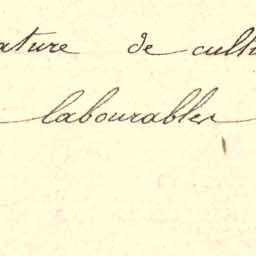 ature de cultu
labourables